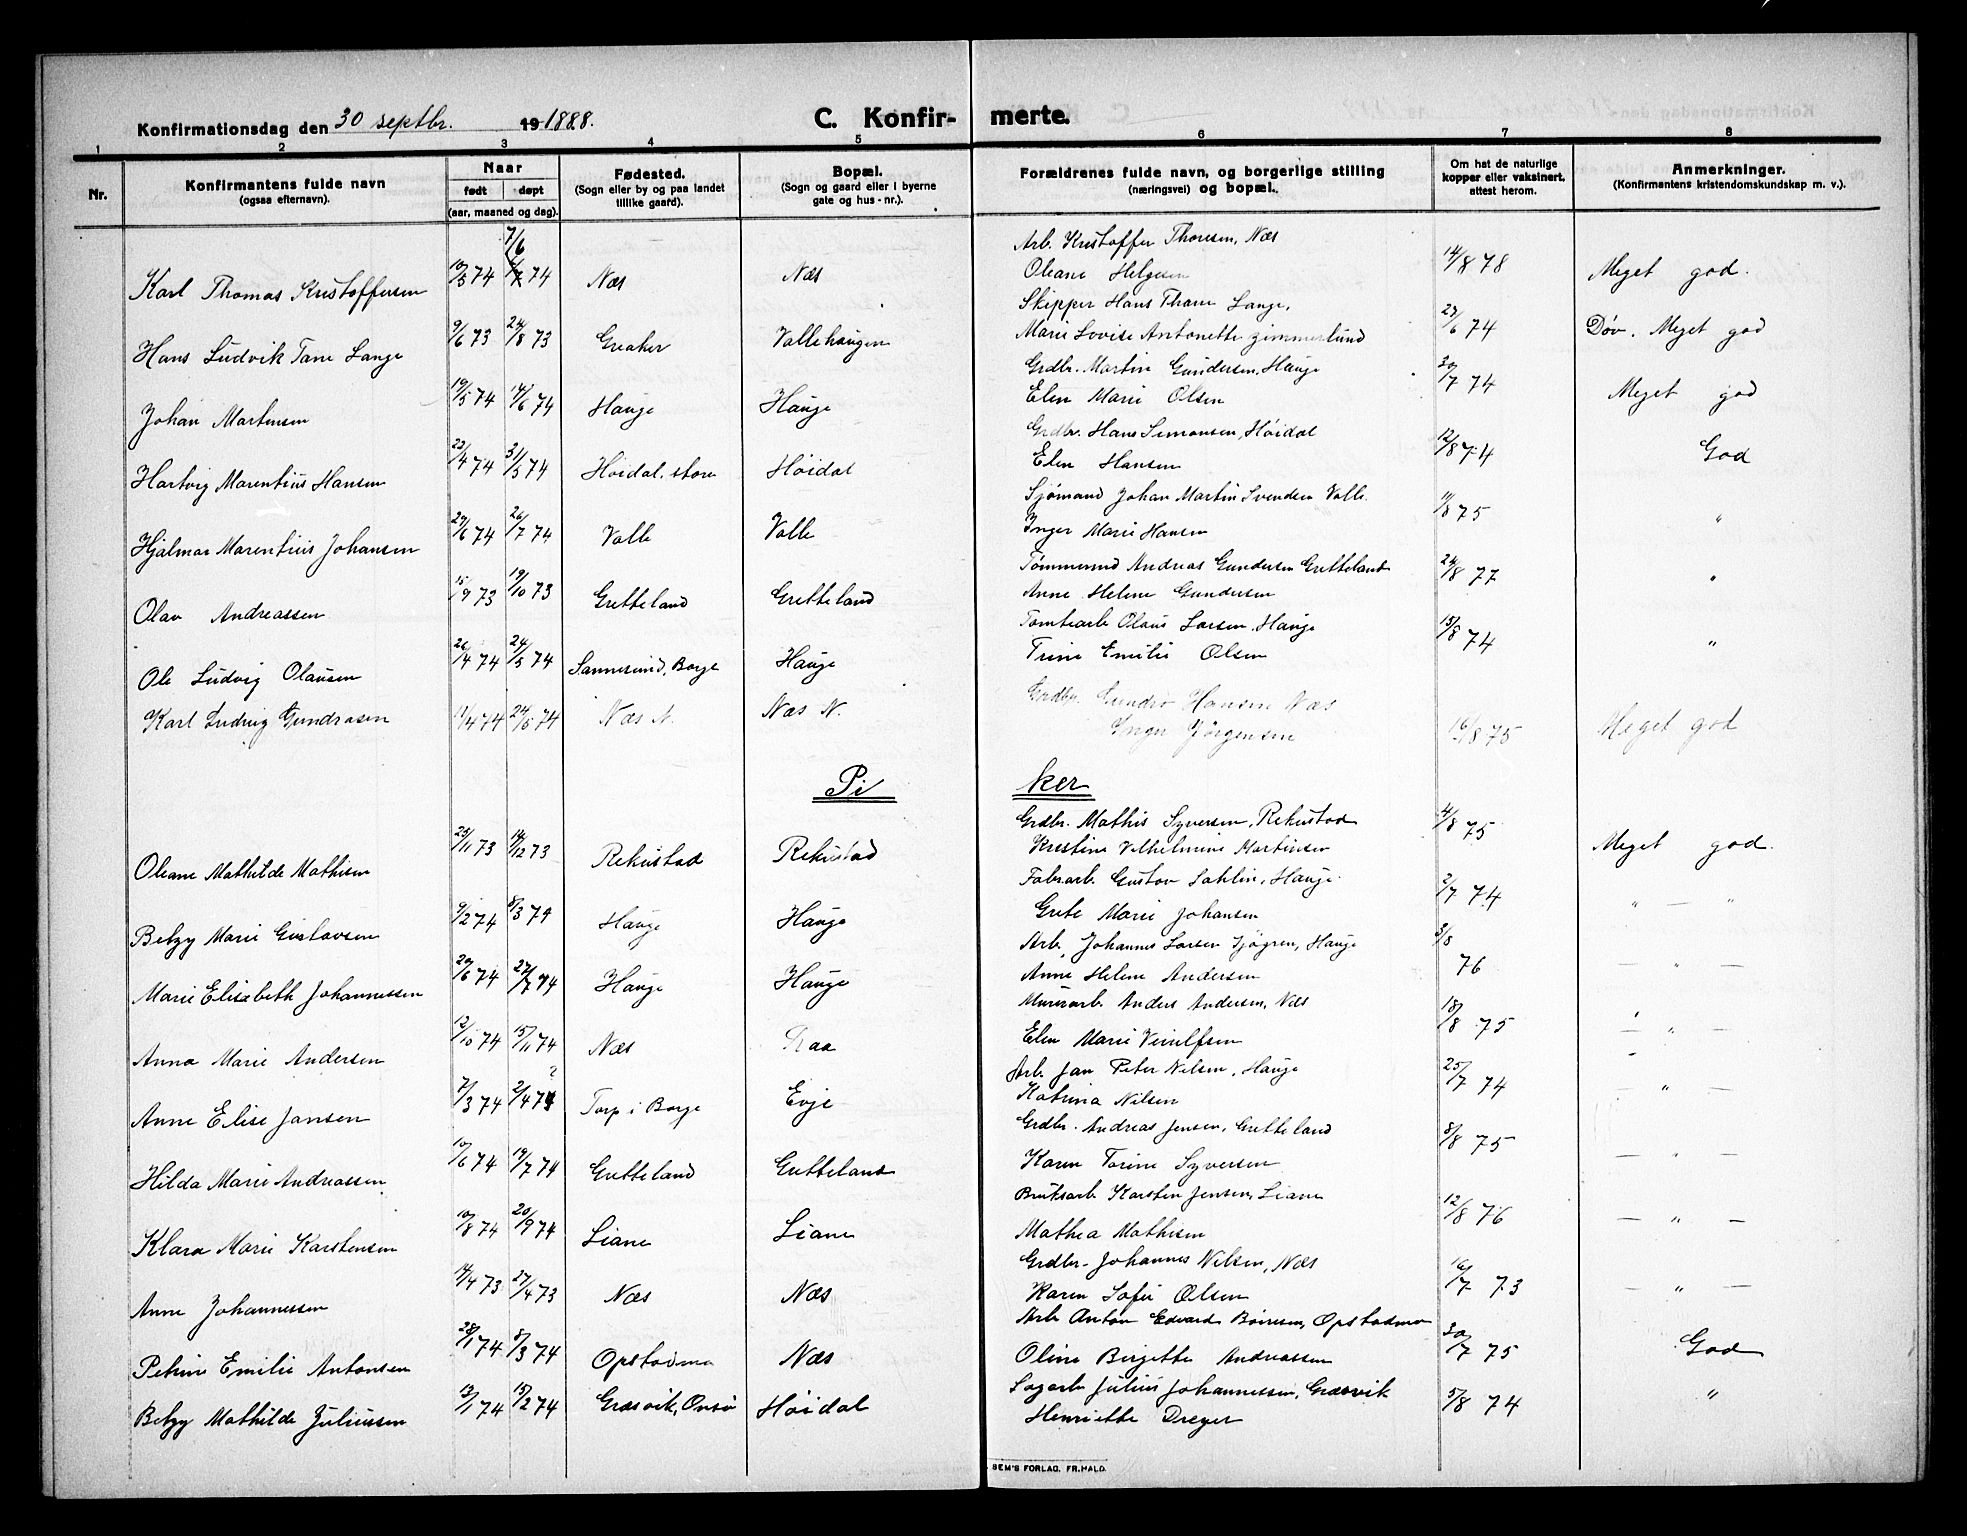 Konfirmationsdag den 30 septbr. 19 1888. C. Konfir- merte.
1 2 3 4 5 6 7 8
Nr. Konfirmantens fulde navn (ogsaa efternavn). Naar født døpt (aar, maaned og dag). Fødested. (Sogn eller by og paa landet tillike gaard). Bopæl. (Sogn og gaard eller i byerne gate og hus-nr.). Forældrenes fulde navn, og borgerlige stilling (næringsvei) og bopæl. Om hat de naturlige kopper eller vaksinert, attest herom. Anmerkninger. (Konfirmantens kristendomskundskap m. v.).
Arb. Kristoffer Thoresen, Næs
Karl Thomas Kristoffersen 10/5 74 7/6 74 Næs Næs Oleane Helgesen 14/8 78 Meget god.
Skipper Hans Thane Lange,
Hans Ludvik Tane Lange 9/6 73 24/8 73 Greaker Vallehaugen Marie Lovise Antonette Zimmerlund 27/6 74 Døv. Meget god
Grdbr. Martin Gundersen, Hauge
Johan Martensen 19/5 74 14/6 74 Hauge Hauge Elen Marie Olsen 30/7 74 Meget god
Grdbr. Hans Simonsen, Høidal
Hartvig Marentius Hansen 22/4 74 31/5 74 Høidal, store Høidal Elen Hansen 12/8 74 God
Sjømand Johan Martin Svendsen Valle.
Hjalmar Marentius Johansen 29/6 74 26/7 74 Valle Valle Inger Marie Hansen 11/8 75 "
Tømmermd Andreas Gundersen Gretteland
Olav Andreassen 15/9 73 19/10 73 Gretteland Gretteland Anne Helene Gundersen 24/8 77 "
Tomtearb. Olaus Larsen, Hauge
Ole Ludvig Olausen 26/4 74 24/5 74 Sannesund, Borge Hauge Trine Emilie Olsen 15/8 74 "
Grdbr. Gundro Hansen Næs
Karl Ludvig Gundrosen 11/4 74 24/5 74 Næs N. Næs N. Inger Jørgensen 16/8 75 Meget god
Pi ker
Grdbr. Mathis Syversen, Rekustad
Oleane Mathilde Mathisen 23/11 73 14/12 73 Rekustad Rekustad Kristine Vilhelmine Martinsen 4/8 75 Meget god.
Fabrarb. Gustav Sahlin, Hauge.
Betzy Marie Gustavsen 9/2 74 8/3 74 Hauge Hauge Grete Marie Johansen 2/7 74 " — "
Arb. Johannes Larsen Sjøgren, Hauge
Marie Elisabeth Johannessen 29/6 74 27/7 74 Hauge Hauge Anne Helene Andersen 3/8 76 — " —
Murerarb. Anders Andersen, Næs
Anna Marie Andersen 12/10 74 15/11 74 Næs Raa Elen Marie 18/8 75 — " —
Arb. Jan Peter Nilsen, Hauge
Anne Elise Jansen 7/3 74 2/4 74 ? Torp i Borge Evje Katrina Nilsen 25/7 74 — " —
Grdbr. Andreas Jensen, Gretteland
Hilda Marie Andreassen 10/6 74 19/7 74 Gretteland Gretteland Karen Torine Syversen 8/8 75 — " —
Bruksarb. Karsten Jensen, Liane
Klara Marie Karstensen 10/8 74 20/9 74 Liane Liane Mathea Mathisen 12/8 76 — " —
Grdbr. Johannes Nilsen, Næs
Anne Johannessen 14/4 73 27/4 73 Næs Næs Karen Sofie Olsen 16/7 73 — " —
Arb. Anton Edvard Børresen, Opstadmo
Petrine Emilie Antonsen 28/1 74 8/3 74 Opstadmo Næs Oline Birgette Andreassen 30/7 75 God
Sagarb. Julius Johannessen, Græsvik
Betzy Mathilde Juliussen 13/1 74 15/2 74 Græsvik, Onsø Høidal Henriette Dreyer 5/8 74 "
SEM'S FORLAG. FR.HALD.